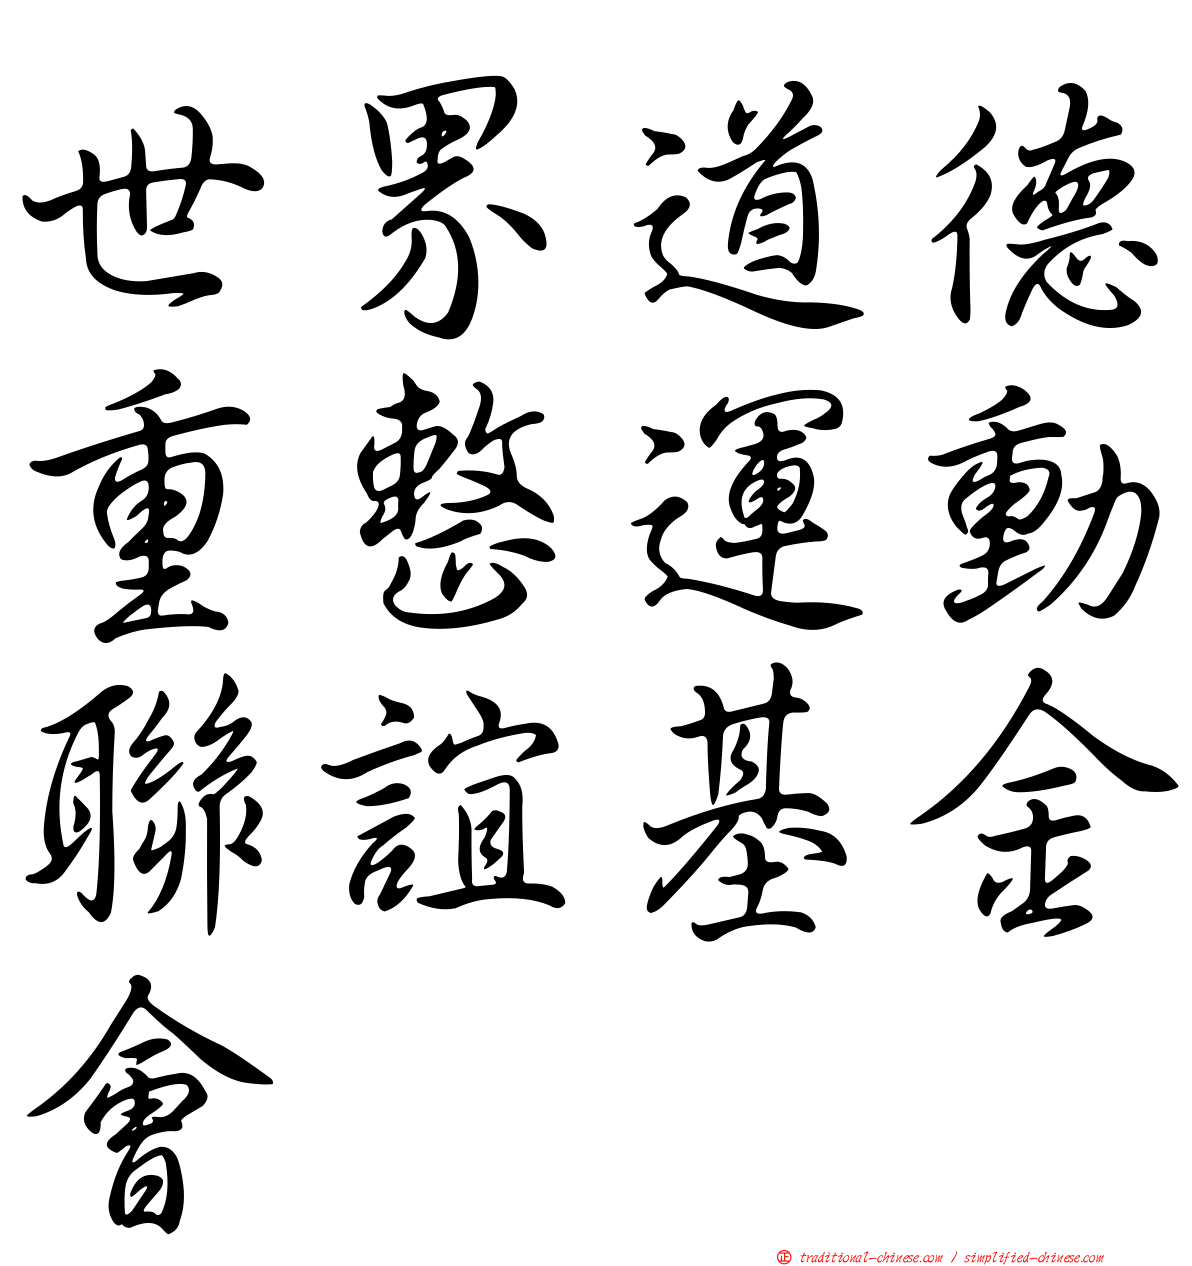 世界道德
重整運動
聯誼基金
會
正 traditional-chinese.com / simplified-chinese.com